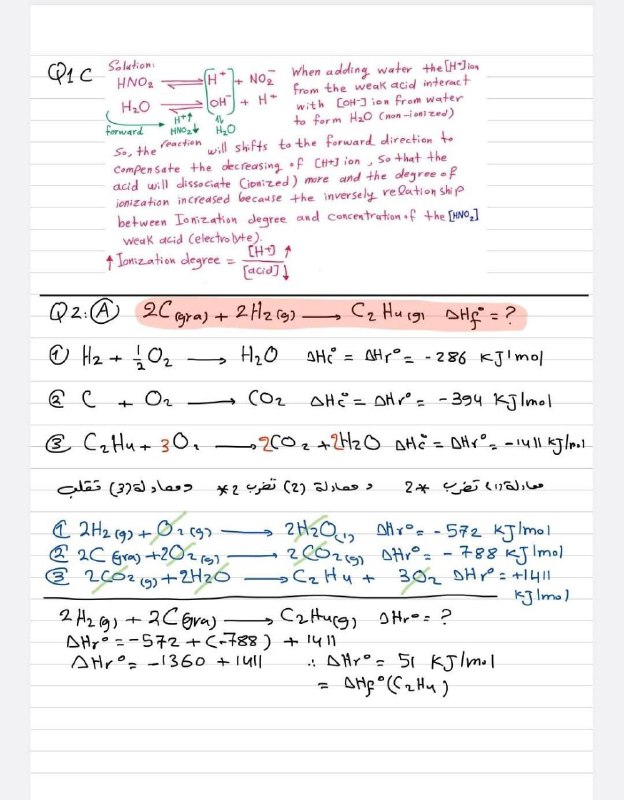 Q1 C Solution:
HNO₂ ⇌ [H⁺] + NO₂⁻
H₂O ⇌ [OH⁻] + H⁺
forward
H⁺↑
HNO₂↓
⇅
H₂O
When adding water the [H⁺] ion
from the weak acid interact
with [OH⁻] ion from water
to form H₂O (non-ionized)
So, the reaction will shifts to the forward direction to
compensate the decreasing of [H+] ion, so that the
acid will dissociate (ionized) more and the degree of
ionization increased because the inversely relation ship
between Ionization degree and concentration of the [HNO₂]
weak acid (electrolyte).
↑ Ionization degree = [H+] ↑ / [acid] ↓
Q2: (A) 2C (gra) + 2H₂ (g) → C₂H₄ (g) ΔHf° = ?
① H₂ + ½ O₂ → H₂O ΔHc° = ΔHr° = -286 KJ/mol
② C + O₂ → CO₂ ΔHc° = ΔHr° = -394 KJ/mol
③ C₂H₄ + 3O₂ → 2CO₂ + 2H₂O ΔHc° = ΔHr° = -1411 KJ/mol
معادلة (1) تضرب *2 و معادلة (2) تضرب 2* ومعادلة (3) تقلب
① 2H₂ (g) + O₂ (g) → 2H₂O (l) ΔHr° = -572 KJ/mol
② 2C (gra) + 2O₂ (g) → 2CO₂ (g) ΔHr° = -788 KJ/mol
③ 2CO₂ (g) + 2H₂O → C₂H₄ + 3O₂ ΔHr° = +1411
KJ/mol
2H₂ (g) + 2C (gra) → C₂H₄ (g) ΔHr° = ?
ΔHr° = -572 + (-788) + 1411
ΔHr° = -1360 + 1411 ∴ ΔHr° = 51 KJ/mol
= ΔHf° (C₂H₄)